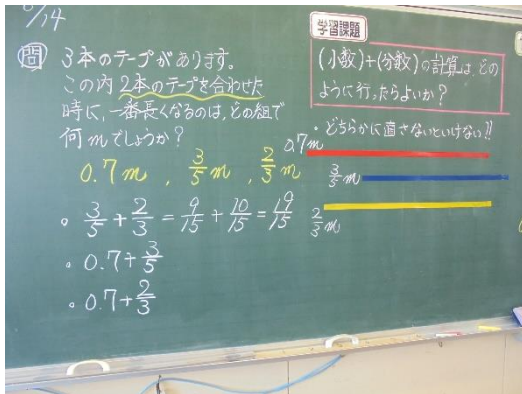 6/14
問 3本のテープがあります。
この内2本のテープを合わせた
時に、一番長くなるのは、どの組で
何mでしょうか?
0.7m , 3/5 m , 2/3 m
。3/5 + 2/3 = 9/15 + 10/15 = 19/15
。0.7 + 3/5
。0.7 + 2/3
学習課題
(小数)+(分数)の計算は、どの
ように行ったらよいか?
・どちらかに直さないといけない!!
0.7m
3/5 m
2/3 m